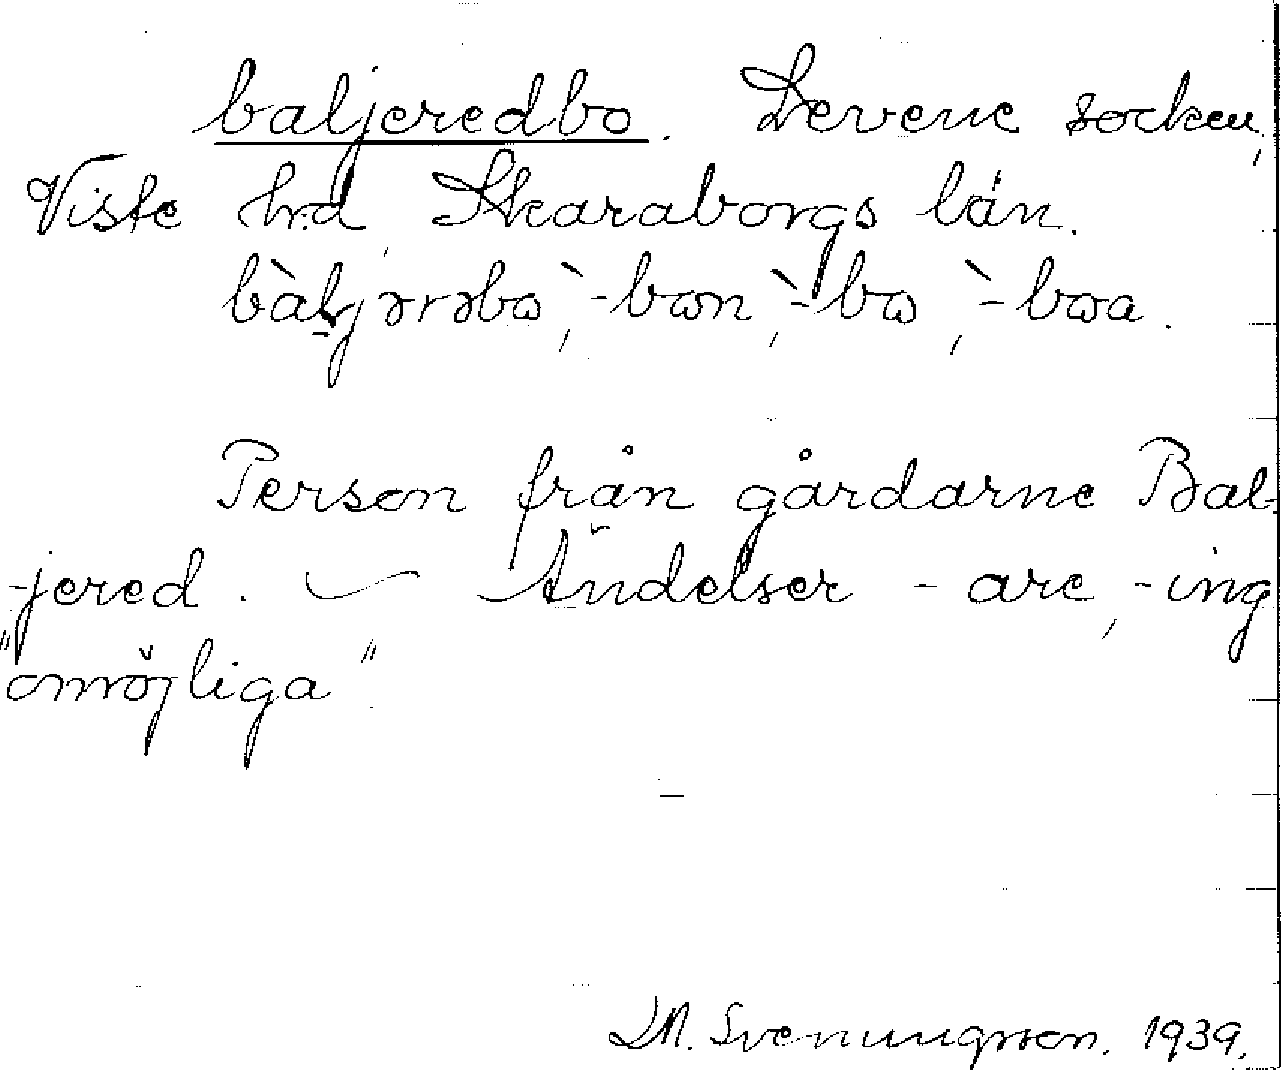 baljeredbo. Levene socken,
Viste hd, Skaraborgs län.
bàljərəbɷ, `-bɷn, `-bɷ, `-bɷa.
Person från gårdarne Bal-
-jered. — Ändelser -are, -ing
"omöjliga".
D.N. Svenungsson. 1939.